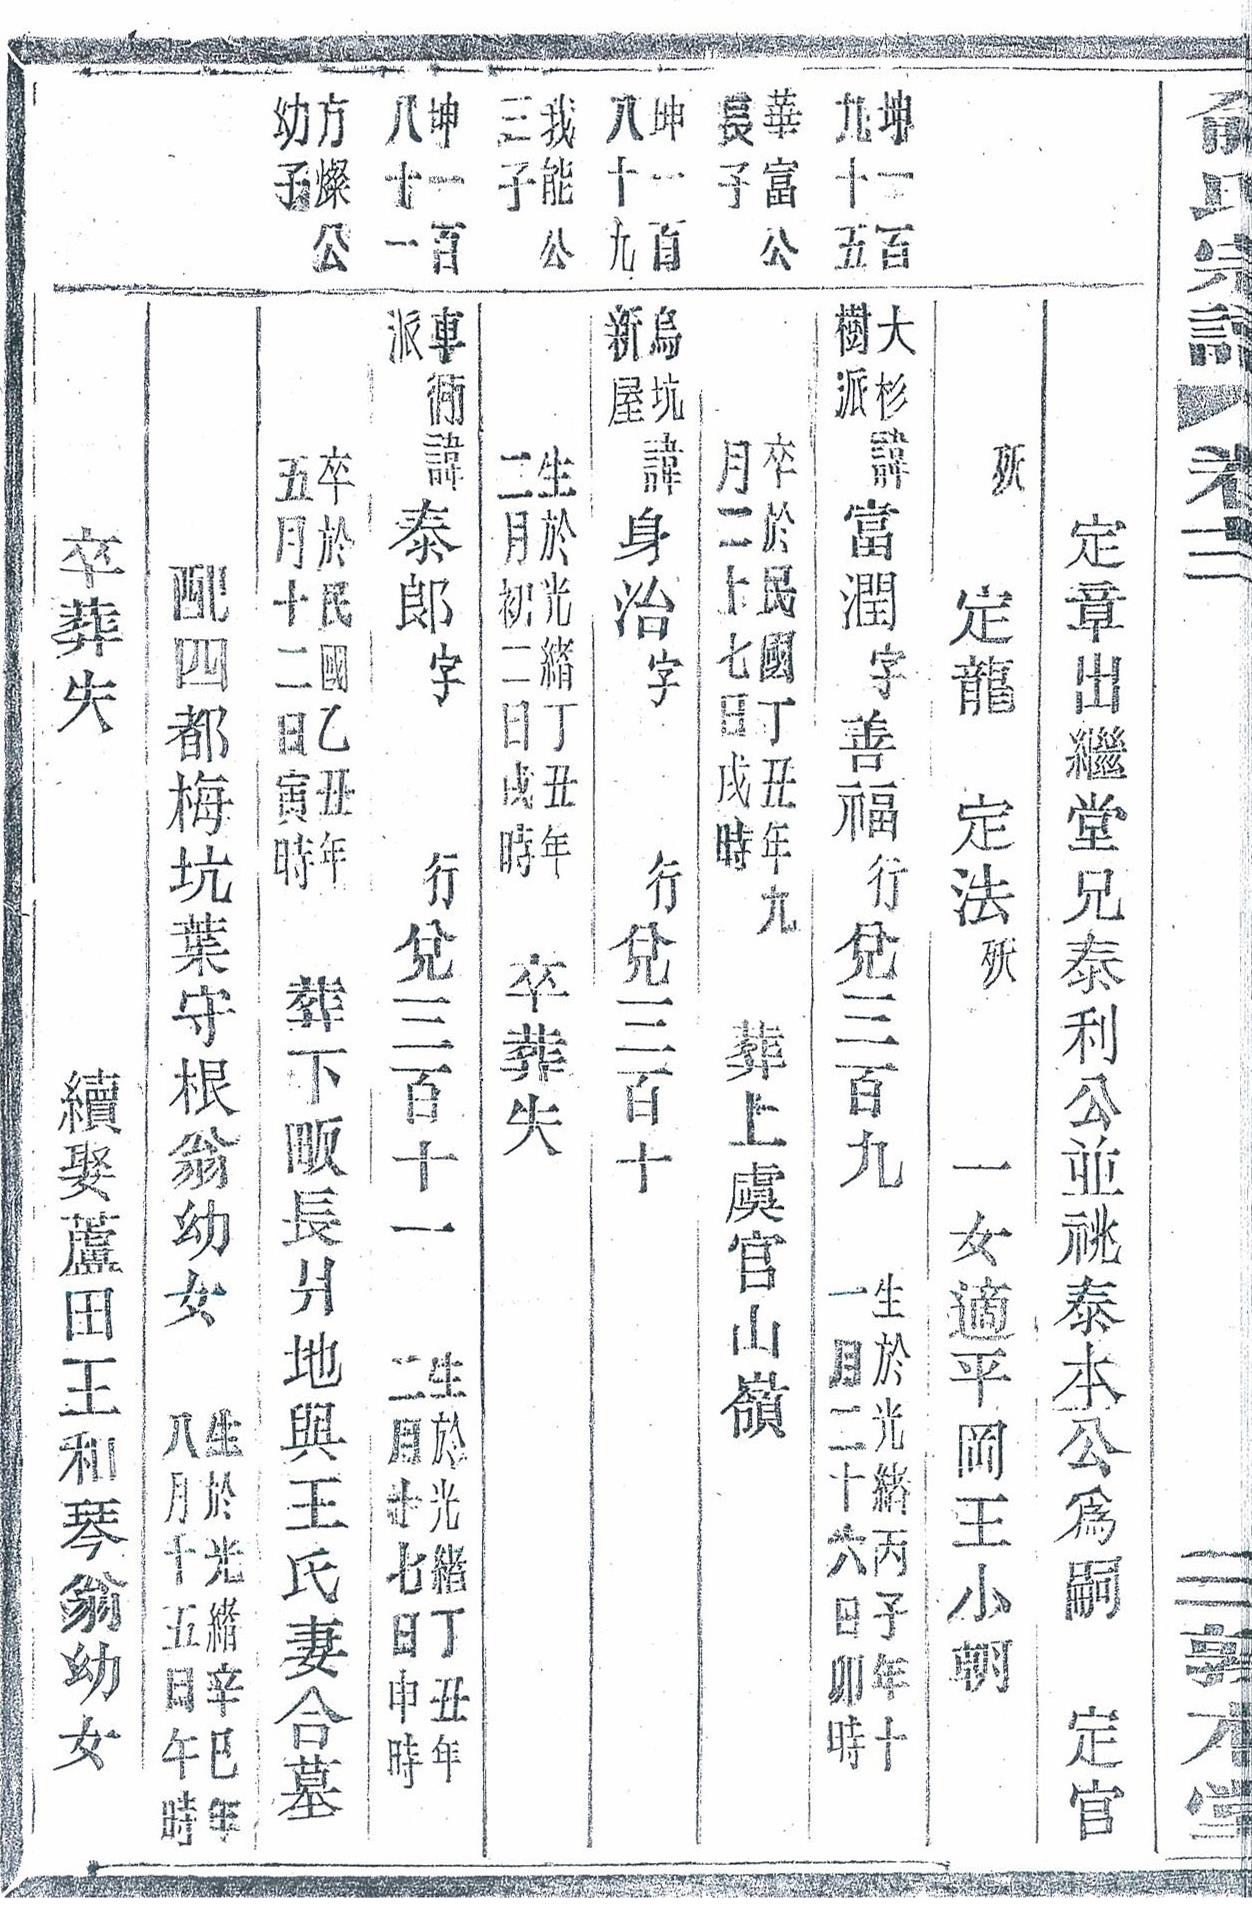 俞氏宗譜 卷二 三 敦本堂
定章出繼堂兄泰利公並祧泰本公爲嗣 定官
殀 定龍 定法殀 一女適平岡王小朝
坤一百
九十五
大杉
樹派
諱富潤字善福行兌三百九
生於光緒丙子年十
一月二十六日卯時
華富公
長子
卒於民國丁丑年九
月二十七日戌時
葬上虞官山嶺
坤一百
八十九
烏坑
新屋
諱身治字 行兌三百十
我能公
三子
生於光緒丁丑年
二月初二日戌時
卒葬失
坤一百
八十一
車衕
派
諱泰郎字 行兌三百十一
生於光緒丁丑年
二月廿七日申時
方燦公
幼子
卒於民國乙丑年
五月十二日寅時
葬下畈長爿地與王氏妻合墓
配四都梅坑葉守根翁幼女
生於光緒辛巳年
八月十五日午時
卒葬失 續娶蘆田王和琴翁幼女